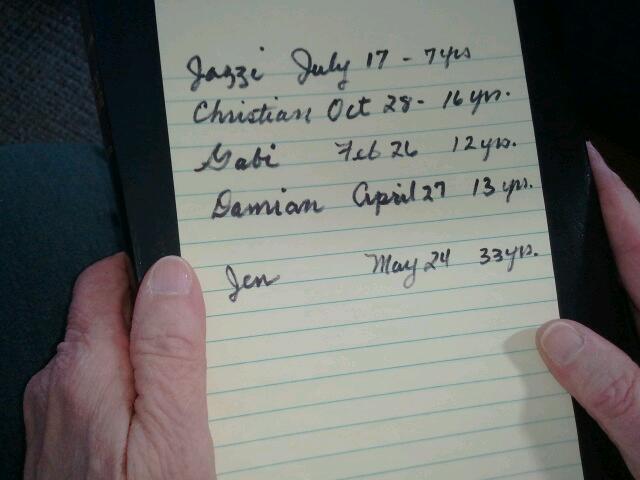 Jazzi July 17 - 7yrs
Christian Oct 28- 16 yrs.
Gabi Feb 26 12 yrs.
Damian April 27 13 yrs.
Jen May 24 33yrs.